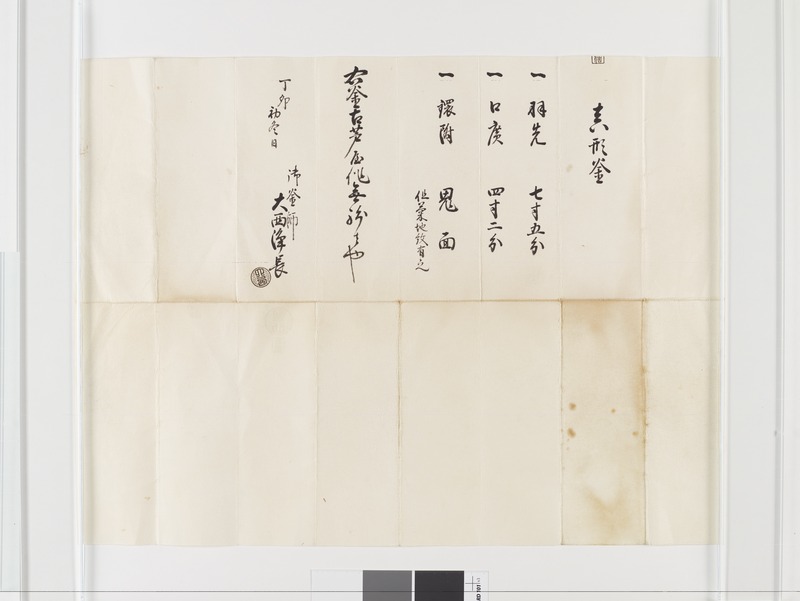 真形釜
一 羽先 七寸五分
一 口廣 四寸二分
一 鐶附 鬼面
但 地紋有之
右釜古芦屋作無紛者也
丁卯初冬日
御釜師
大西浄長